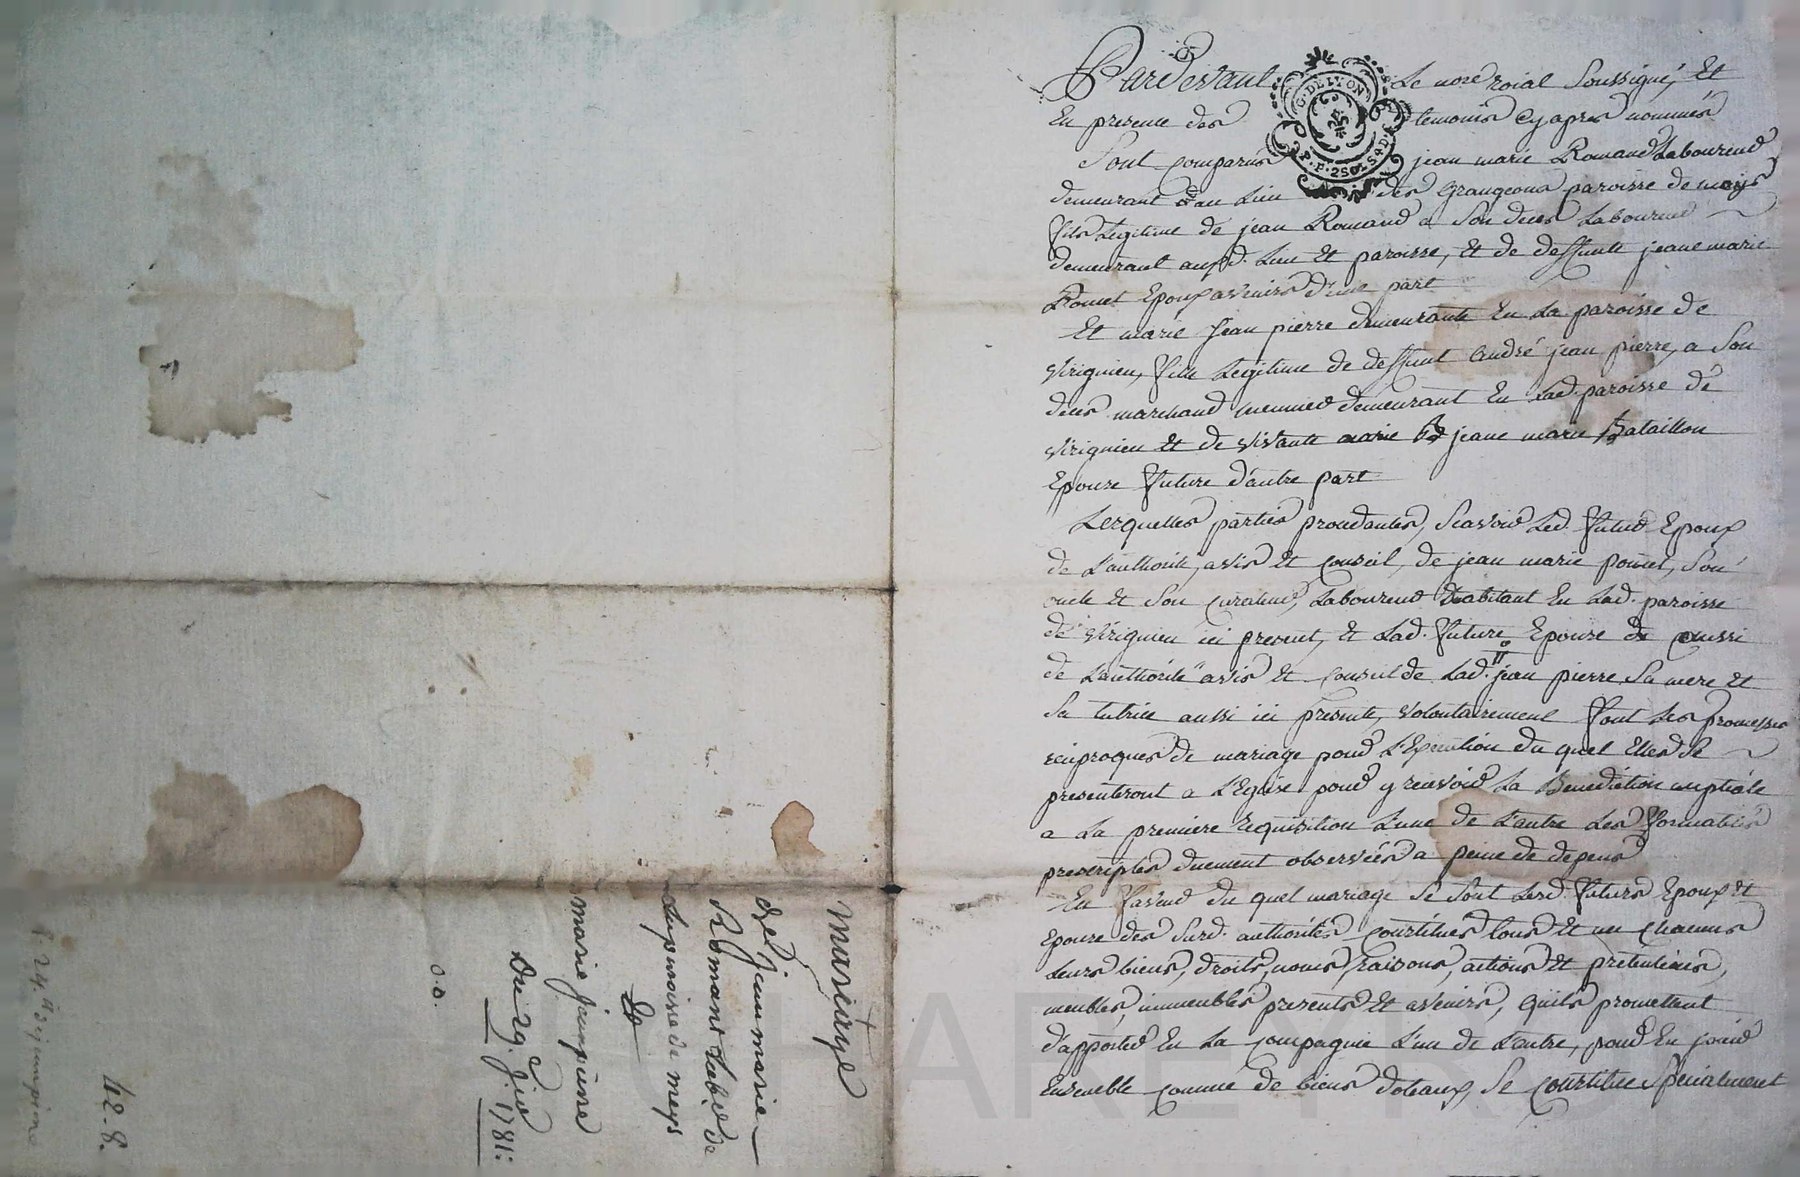 mariage
de Jean marie
Romant Lab.r de
La paroisse de meys
&
marie jeanpierre
Du 29.e J.er 1781:
o.o.
42-8.
G. DE LYON
P. P. 2 SOLS 4 D.
Pardevant Le no.re roial soussigné, et
En presence des temoins cy apres nommés
Sont comparus jean marie Romand Laboureur
demeurant au Lieu des grangeons paroisse de meys
fils Legitime de jean Romand a son deces Laboureur
demeurant aud. Lieu et paroisse, et de deffunte jeane marie
Poncet Epoux avenir d'une part
Et marie Jean pierre demeurante En La paroisse de
Virignieu, fille Legitime de deffunt André jean pierre, a son
deces marchand demeurant En Lad. paroisse de
Virignieu et de vivante jeane marie Bataillon
Epouse future d'autre part
Lesquelles parties procedantes, scavoir Led. futur Epoux
de L'authorité, avis et conseil, de jean marie poncet, son
oncle et son curateur, Laboureur habitant En Lad. paroisse
de Virignieu ici present, et Lad. future Epouse aussi
de L'authorité avis et conseil de Lad. jean pierre, sa mere et
sa tutrice aussi ici presente, volontairement font Les promesses
reciproques de mariage pour L'Execution du quel Elles se
presenteront a L'Eglise pour y recevoir La Benediction nuptiale
a La premiere requisition L'une de L'autre Les formalités
prescriptes duement observées a peine de depens
En faveur du quel mariage se sont Lesd. futurs Epoux et
Epouse des susd. authorités constitués tous et un chacuns
Leurs biens, droits, noms, raisons, actions et pretentions,
meubles, immeubles presents et avenirs, quils promettent
d'apporter En La compagnie L'un de L'autre, pour En jouir
Ensemble comme de biens dotaux, se constitue specialement